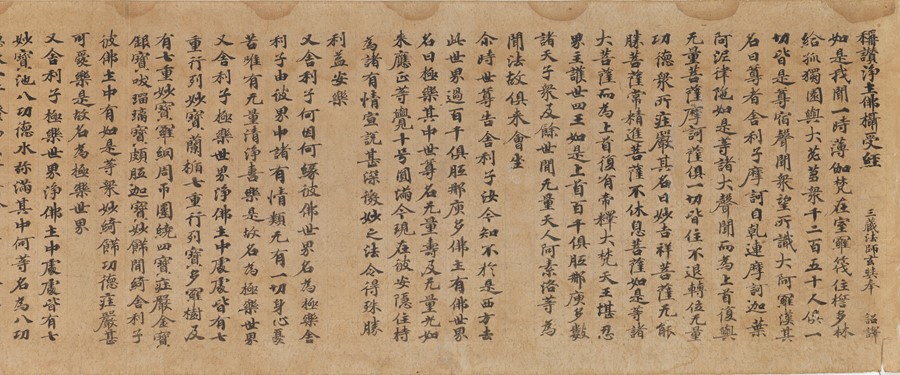 稱讚淨土佛攝受經　三藏法師玄奘奉　詔譯
如是我聞一時薄伽梵在室羅筏住誓多林
給孤獨園與大苾芻衆千二百五十人俱一
切皆是尊宿聲聞衆望所識大阿羅漢其
名曰尊者舍利子摩訶目乾連摩訶迦葉
阿泥律陁如是等諸大聲聞而為上首復與
无量菩薩摩訶薩俱一切皆住不退轉位无量
功德衆所莊嚴其名曰妙吉祥菩薩无能
勝菩薩常精進菩薩不休息菩薩如是等諸
大菩薩而為上首復有帝釋大梵天王堪忍
界主護世四王如是上首百千俱胝那庾多數
諸天子衆及餘世間无量天人阿素洛等為
聞法故俱來會坐
尒時世尊告舍利子汝今知不於是西方去
此世界過百千俱胝那庾多佛土有佛世界
名曰極樂其中世尊名无量壽及无量光如
來應正等覺十号圓滿今現在彼安隱住持
為諸有情宣說甚深微妙之法令得殊勝
利益安樂
又舍利子何因何緣彼佛世界名為極樂舍
利子由彼界中諸有情類无有一切身心憂
苦唯有无量清淨喜樂是故名為極樂世界
又舍利子極樂世界淨佛土中處處皆有七
重行列妙寶蘭楯七重行列寶多羅樹及
有七重妙寶羅網周帀圍繞四寶莊嚴金寶
銀寶吠瑠璃寶頗胝迦寶妙餝間綺舍利子
彼佛土中有如是等衆妙綺餝功德莊嚴甚
可愛樂是故名為極樂世界
又舍利子極樂世界淨佛土中處處皆有七
妙寶池八功德水弥滿其中何等名為八功